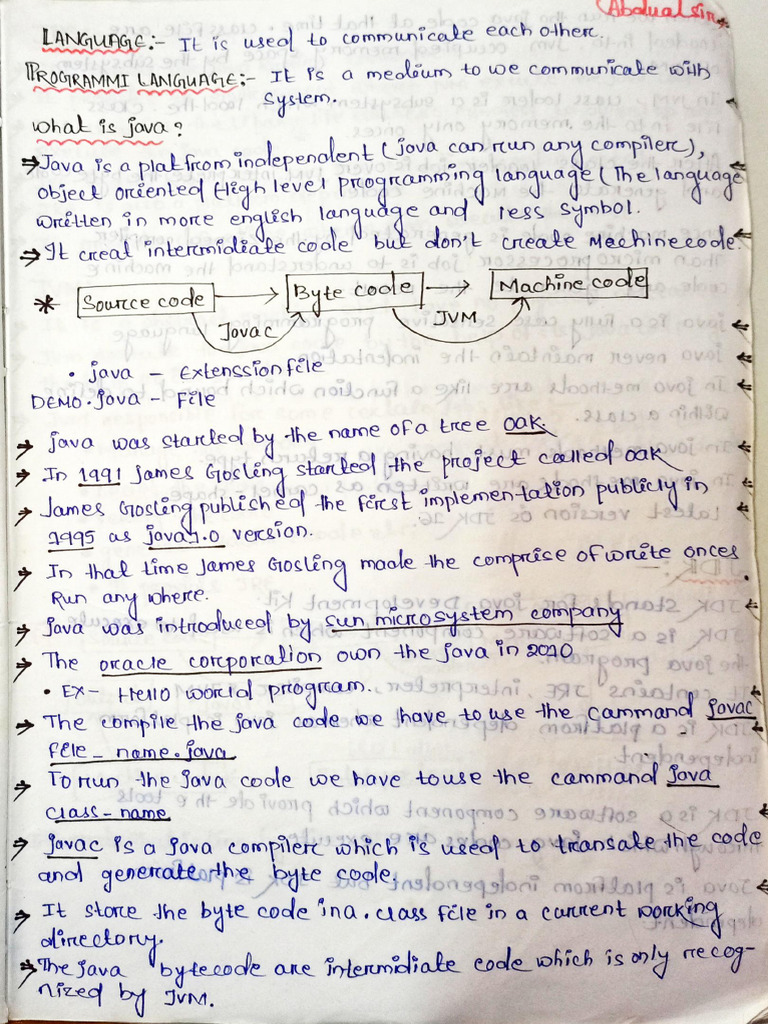 Abdualsir
LANGUAGE:- It is used to communicate each other.
PROGRAMMI LANGUAGE:- It is a medium to we communicate with
system.
What is java?
⇒ Java is a platfrom independent (java can run any compiler),
object oriented High level programming language (The language
written in more english language and less symbol.
⇒ It creat intermidiate code but don't create Machine code.
* Source code → Byte code → Machine code
Javac JVM
• java - Extenssion file
DEMO.java - File
→ java was started by the name of a tree oak.
→ In 1991 james Gosling started the project called oak
→ James Gosling published the first implementation publicly in
1995 as java 1.0 version.
→ In that time James Gosling made the comprise of write onces
Run any where.
→ java was introduced by sun microsystem company
→ The oracle corporation own the java in 2010
• Ex- Hello world program.
→ The compile the java code we have to use the cammand javac
file_name.java
→ To run the java code we have to use the cammand java
class-name
→ javac is a java compiler which is used to transate the code
and generate the byte code.
→ It store the byte code in a .class file in a current working
directory.
→ The java bytecode are intermidiate code which is only recog-
nized by JVM.